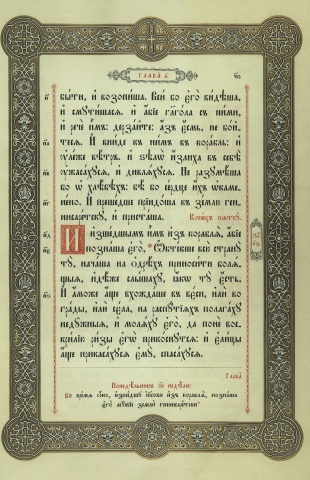 Глава ѕ҃
быти, и҆ возопиша. Вси бо є҆го̀ ви́дѣша,
и҆ смути́шасѧ. И҆ а҆́бїе гл҃гола съ ни́ми,
и҆ речѐ и҆̀мъ: дерза́йте: а҆́зъ є҆́смь, не бо́й-
тесѧ. И҆ вни́де къ ни̑мъ въ кора́бль: и҆
ᲂу҆леже вѣ́тръ. И҆ ѕѣлѡ̀ и҆́злиха въ себѣ̀
ᲂу҆жаса́хусѧ, и҆ дивлѧ́хусѧ. Не разумѣ́ша
бо ѡ҆ хлѣ́бѣхъ: бѣ́ бо се́рдце и҆́хъ ѡ҆каме-
не́но. И҆ преше́дше прїидо́ша въ зе́млю ген-
нисаре́тску, и҆ приста́ша. Коне́цъ пѧтку̀.
И҆зше́дшымъ и҆̀мъ и҆з̾ кораблѧ̀, а҆́бїе
позна́ша є҆го̀. Ѡ҆бте́кше всю̀ страну̀
ту̀, нача́ша на ѻ҆дрѣ́хъ приноси́ти болѧ́-
щыѧ, и҆дѣ́же слы́шаху, ꙗ҆́кѡ ту̀ є҆́сть.
И҆ а҆́може а҆́ще вхожда́ше въ вє́си, и҆лѝ во
гра́ды, и҆лѝ се́ла, на распу́тїихъ полага́ху
неду́жныѧ, и҆ молѧ́ху є҆го̀, да понѐ вос-
кри́лїю ри́зы є҆гѡ̀ прикосну́тсѧ: и҆ є҆ли́цы
а҆́ще прикаса́хусѧ є҆мꙋ̀, спаса́хусѧ.
Глава̀
Понедѣ́льникъ н҃і недѣ́ли:
Во вре́мѧ ѻ҆́но, и҆зше́дшу і҆и҃сови и҆з̾ кораблѧ̀, позна́ша
є҆го̀ му́жїе землѝ геннисаре́тскїѧ: